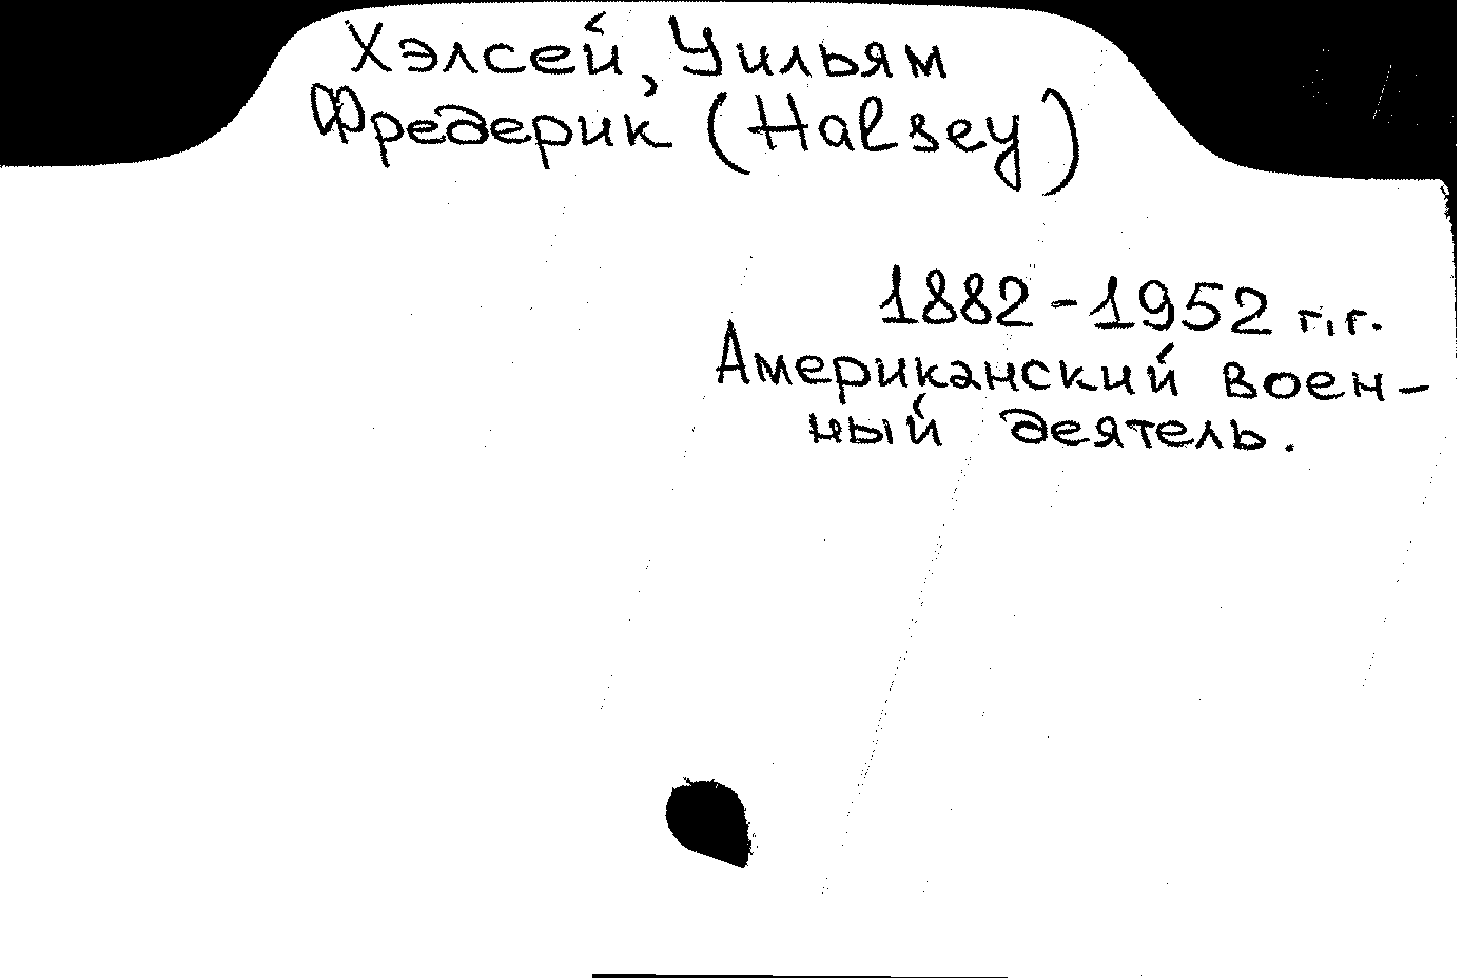 Хэлсей, Уильям
Фредерик (Halsey)
1882-1952 г.г.
Американский воен-
ный деятель.